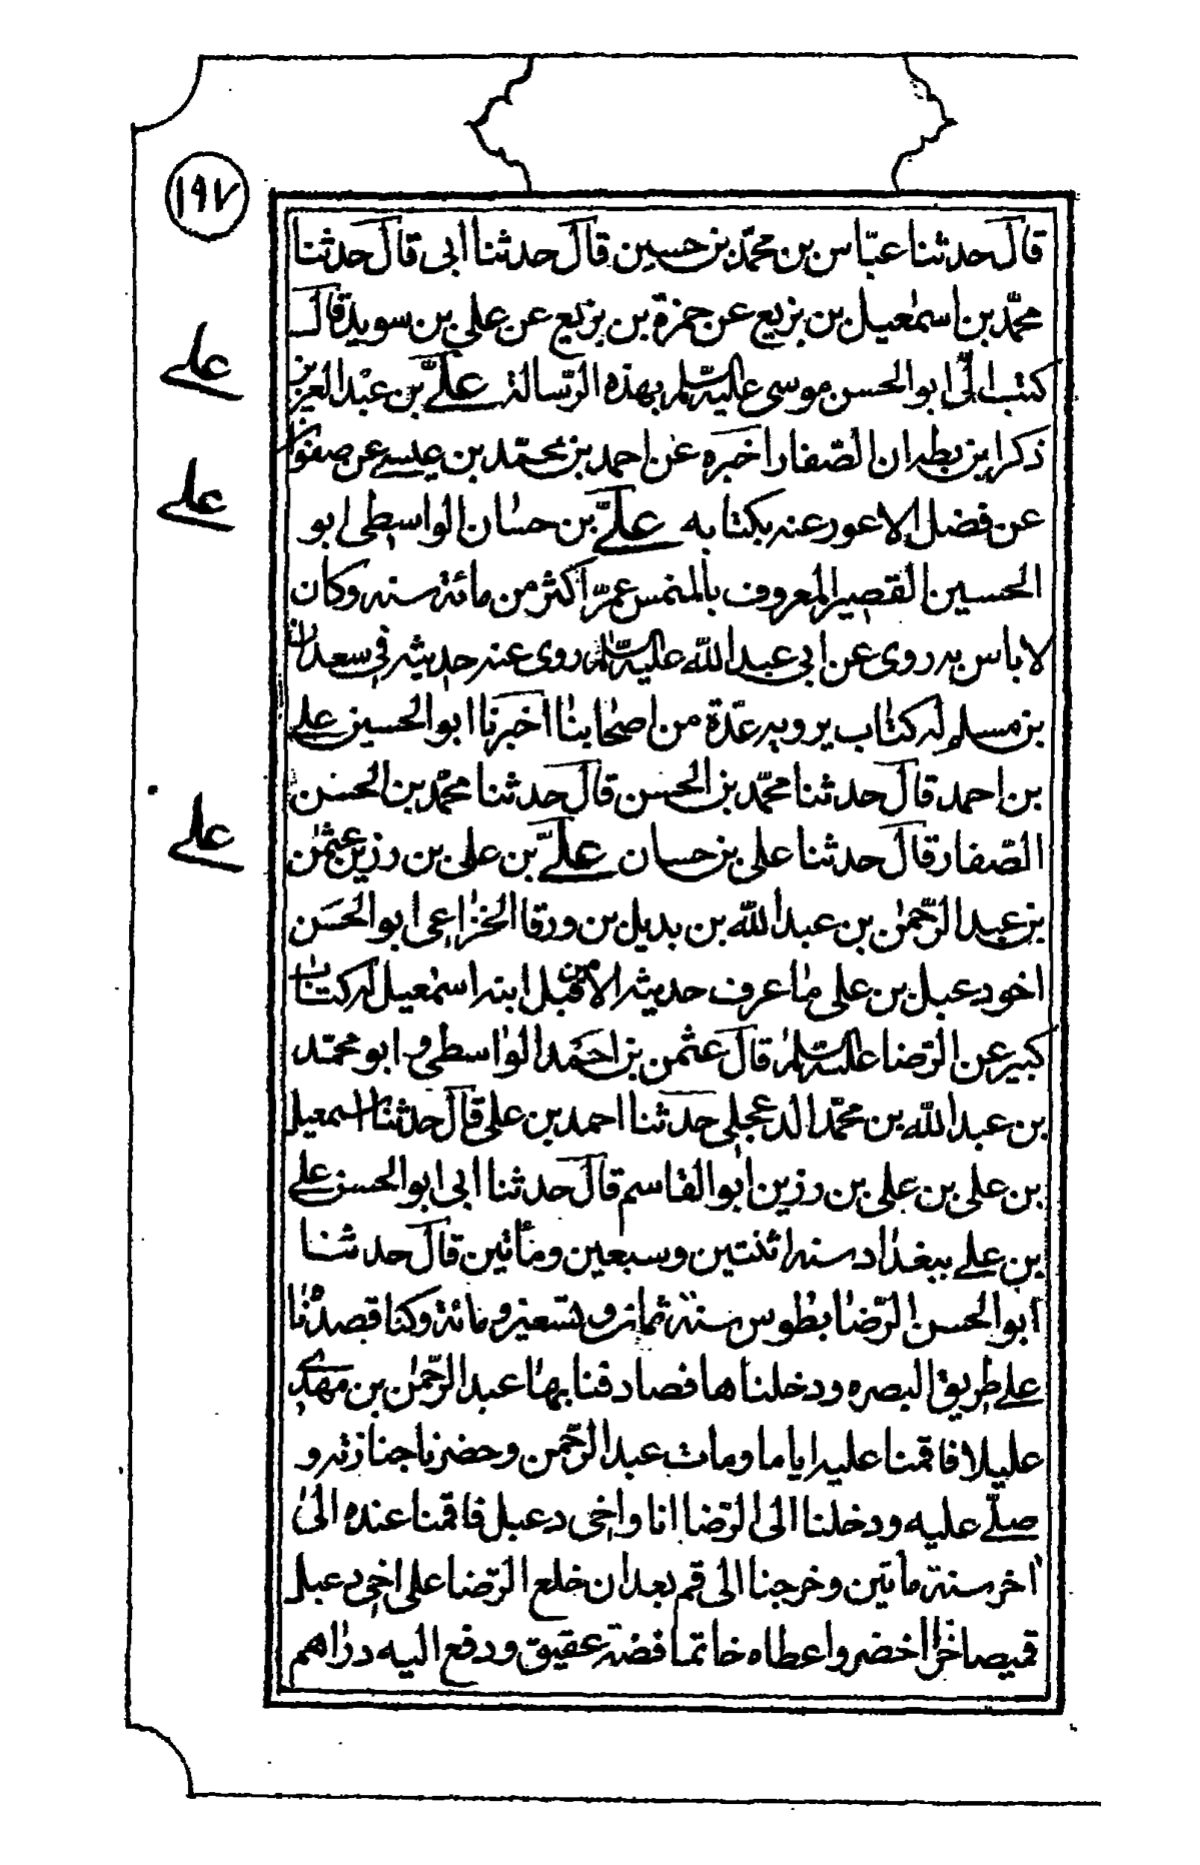 ١٩٧
قال حدثنا عباس بن محمد بن حسين قال حدثنا ابى قال حدثنا
محمد بن اسمعيل بن بزيع عن حمزة بن بزيع عن على بن سويد قال
علے
كتب الىّ ابو الحسن موسى عليه السّلم بهذه الرّسالة علىّ بن عبد العزيز
ذكر ابن بطه ان الصّفار اخبره عن احمد بن محمّد بن عيسے عن صفوان
علے
عن فضل الاعور عنه بكتابه علىّ بن حسان الواسطى ابو
الحسين القصير المعروف بالمنمس عمّر اكثر من مائة سنه وكان
لا باس به روى عن ابي عبد اللّه عليه السّلم روى عنه حديثه في سعدان
بن مسلم له كتاب يرويه عدّة من اصحابنا اخبرنا ابو الحسين علے
بن احمد قال حدثنا محمّد بن الحسن قال حدثنا محمّد بن الحسن
علے
الصّفار قال حدثنا على بن حسان علىّ بن على بن رزين عثمن
بن عبد الرّحمن بن عبد اللّه بن بديل بن ورقا الخزاعى ابو الحسَن
اخو دعبل بن على ما عرف حديثه الا من قبل ابنه اسمعيل له كتاب
كبير عن الرّضا عليه السّلم قال عثمن بن احمَد الواسطى و ابو محمّد
بن عبد اللّه بن محمّد الدعجلى حدثنا احمد بن على قال حدثنا اسمعيل
بن على بن على بن رزين ابو القاسم قال حدثنا ابى ابو الحسن علے
بن علے ببغداد سنه اثنتين وسبعين ومأتين قال حدثنا
ابو الحسن الرّضا بطوس سنة ثمان و تسعين و مائة وكنا قصدناه
علے طريق البصره ودخلناها فصادفنا بها عبد الرّحمن بن مهدے
عليلا فاقمنا عليه اياما ومات عبد الرّحمن وحضرنا جنازته و
صلّے عليه ودخلنا الى الرّضا انا واخى دعبل فاقمنا عنده الى
اخر سنة مأتين وخرجنا الى قم بعد ان خلع الرّضا على اخى دعبل
قميصا خزّا اخضر واعطاه خاتما فضّة عقيق ودفع اليه دراهم